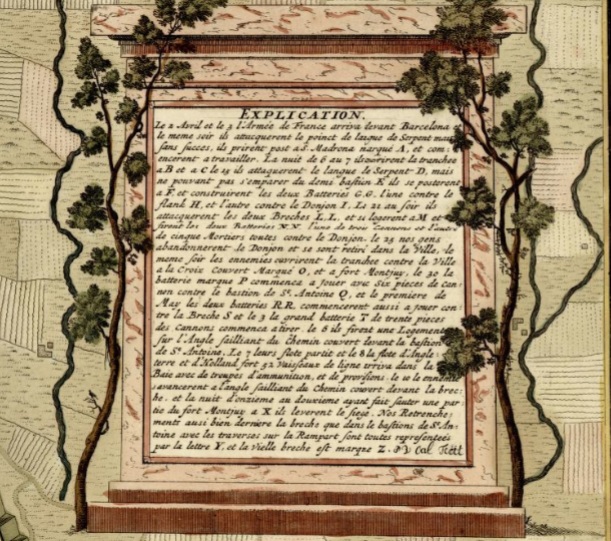 EXPLICATION.
Le 2 Avril et le 3 l'Armée de France arriva devant Barcelona et
le meme soir ils attacquerent le poinct de langue de Serpent mais
sans succes, ils prirent post a S. Madrona marque A, et com:
encerent a travailler. La nuit de 6 au 7 ils ouvrirent la tranchee
a B et a C le 15 ils attaquerent le langue de Serpent D, mais
ne pouvant pas s'emparer du demi bastiun E ils se posterent
a F et construirent les deux Batteries G.G. l'une contre le
flank H, et l'autre contre le Donjon I. Le 21 au soir ils
attacquerent les deux Broches L.L. et si logerent a M et
firent les deux Batteries N.N. l'une de trois Cannons et l'autre
de cinque Mortiers toutes contre le Donjon. le 25 nos gens
abandonnerent le Donjon et se sont retiré dans la Ville, le
meme soir les ennemies ouvrirent la tranchee contre la Ville
a la Croix Couvert Marqué O, et a fort Montjuy, le 30 la
batterie marque P commenca a jouer avec Six pieces de can:
non contre le bastion de St. Antoine Q, et le premiere de
May les deux batteries RR. commencerent aussi a jouer con:
tre la Broche S et le 3 la grand batterie T de trente pieces
des cannons commenca a tirer. le 8 ils firent une Logement
sur l'Angle sailliant du Chemin couvert devant la bastion
de St. Antoine. Le 7 leurs flote partit et le 8 la flote d'Angle:
terre et d'Holland fort 52 Vaisseaux de ligne arriva dans la
Baie avec de troupes d'ammunition, et de provisions. le 10 le ennemie
savancerent a l'angle sailliant du Chemin couvert devant la brec:
he. et la nuit d'onzieme au douzieme ayant fait sauter une par:
tie du fort Montjuy a X ils leverent le siege. Nos Retrenche:
ments aussi bien derriere la breche que dans le bastions de St. An:
toine avec les traverses sur la Rampart sont toutes representeés
par la lettre Y. et la Vielle breche est marque Z.